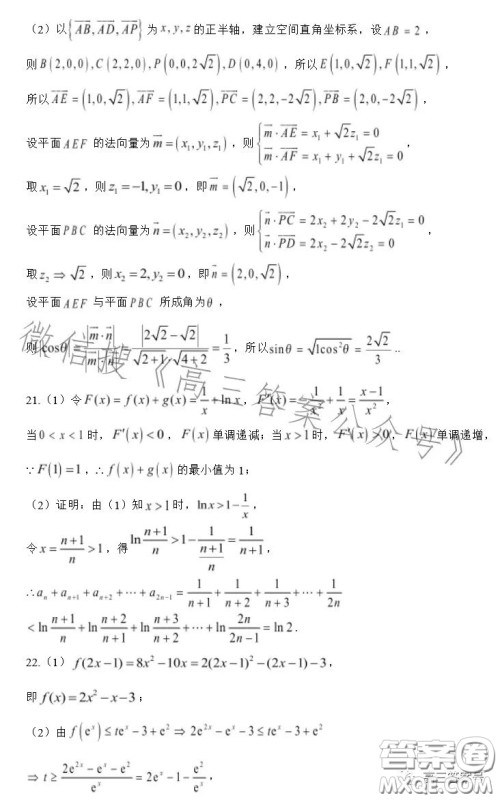 （2）以{AB, AD, AP}为 x, y, z 的正半轴，建立空间直角坐标系，设 AB = 2，
则 B(2,0,0), C(2,2,0), P(0,0,2√2), D(0,4,0)，所以 E(1,0,√2), F(1,1,√2)，
所以 AE = (1,0,√2), AF = (1,1,√2), PC = (2,2,-2√2), PB = (2,0,-2√2)，
设平面 AEF 的法向量为 m = (x₁, y₁, z₁)，则 { m · AE = x₁ + √2z₁ = 0
m · AF = x₁ + y₁ + √2z₁ = 0
取 x₁ = √2，则 z₁ = -1, y₁ = 0，即 m = (√2, 0, -1)，
设平面 PBC 的法向量为 n = (x₂, y₂, z₂)，则 { n · PC = 2x₂ + 2y₂ - 2√2z₁ = 0
n · PD = 2x₂ - 2√2z₂ = 0 ，
取 z₂ ⇒ √2，则 x₂ = 2, y₂ = 0，即 n = (2, 0, √2)，
设平面 AEF 与平面 PBC 所成角为 θ，
则 cosθ = |m · n| / |m| · |n| = |2√2 - √2| / √(2+1) · √(4+2) = 1/3，所以 sinθ = √(1cos²θ) = 2√2/3 ..
21.（1）令 F(x) = f(x) + g(x) = 1/x + ln x, F'(x) = 1/x + 1/x = (x-1)/x²，
当 0 < x < 1 时，F'(x) < 0，F(x) 单调递减；当 x > 1 时，F'(x) > 0，F(x) 单调递增，
∵ F(1) = 1，∴ f(x) + g(x) 的最小值为 1；
（2）证明：由（1）知 x > 1 时，ln x > 1 - 1/x，
令 x = (n+1)/n > 1，得 ln (n+1)/n > 1 - 1/((n+1)/n) = 1/(n+1)，
∴ aₙ + aₙ₊₁ + aₙ₊₂ + ⋯ + a₂ₙ₋₁ = 1/(n+1) + 1/(n+2) + 1/(n+3) + ⋯ + 1/2n
< ln (n+1)/n + ln (n+2)/(n+1) + ln (n+3)/(n+2) + ⋯ + ln 2n/(2n-1) = ln 2 .
22.（1） f(2x-1) = 8x² - 10x = 2(2x-1)² - (2x-1) - 3，
即 f(x) = 2x² - x - 3；
（2）由 f(eˣ) ≤ teˣ - 3 + e² ⇒ 2e²ˣ - eˣ - 3 ≤ teˣ - 3 + e²
⇒ t ≥ (2e²ˣ - eˣ - e²)/eˣ = 2eˣ - 1 - e²/eˣ，
微信搜《高三答案公众号》
答案圈